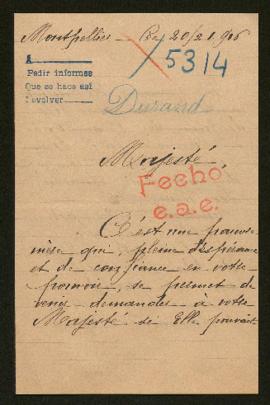 Montpellier Le 20/2 1916
5314
A
Pedir informes
Que se haga así
Devolver
Durand
Majesté,
Fecho
e.a.e.
C'est une pauvre
mère qui, pleine d'espérance
et de confiance en votre
pouvoir, se permet de
venir demander à votre
Majesté si Elle pouvait